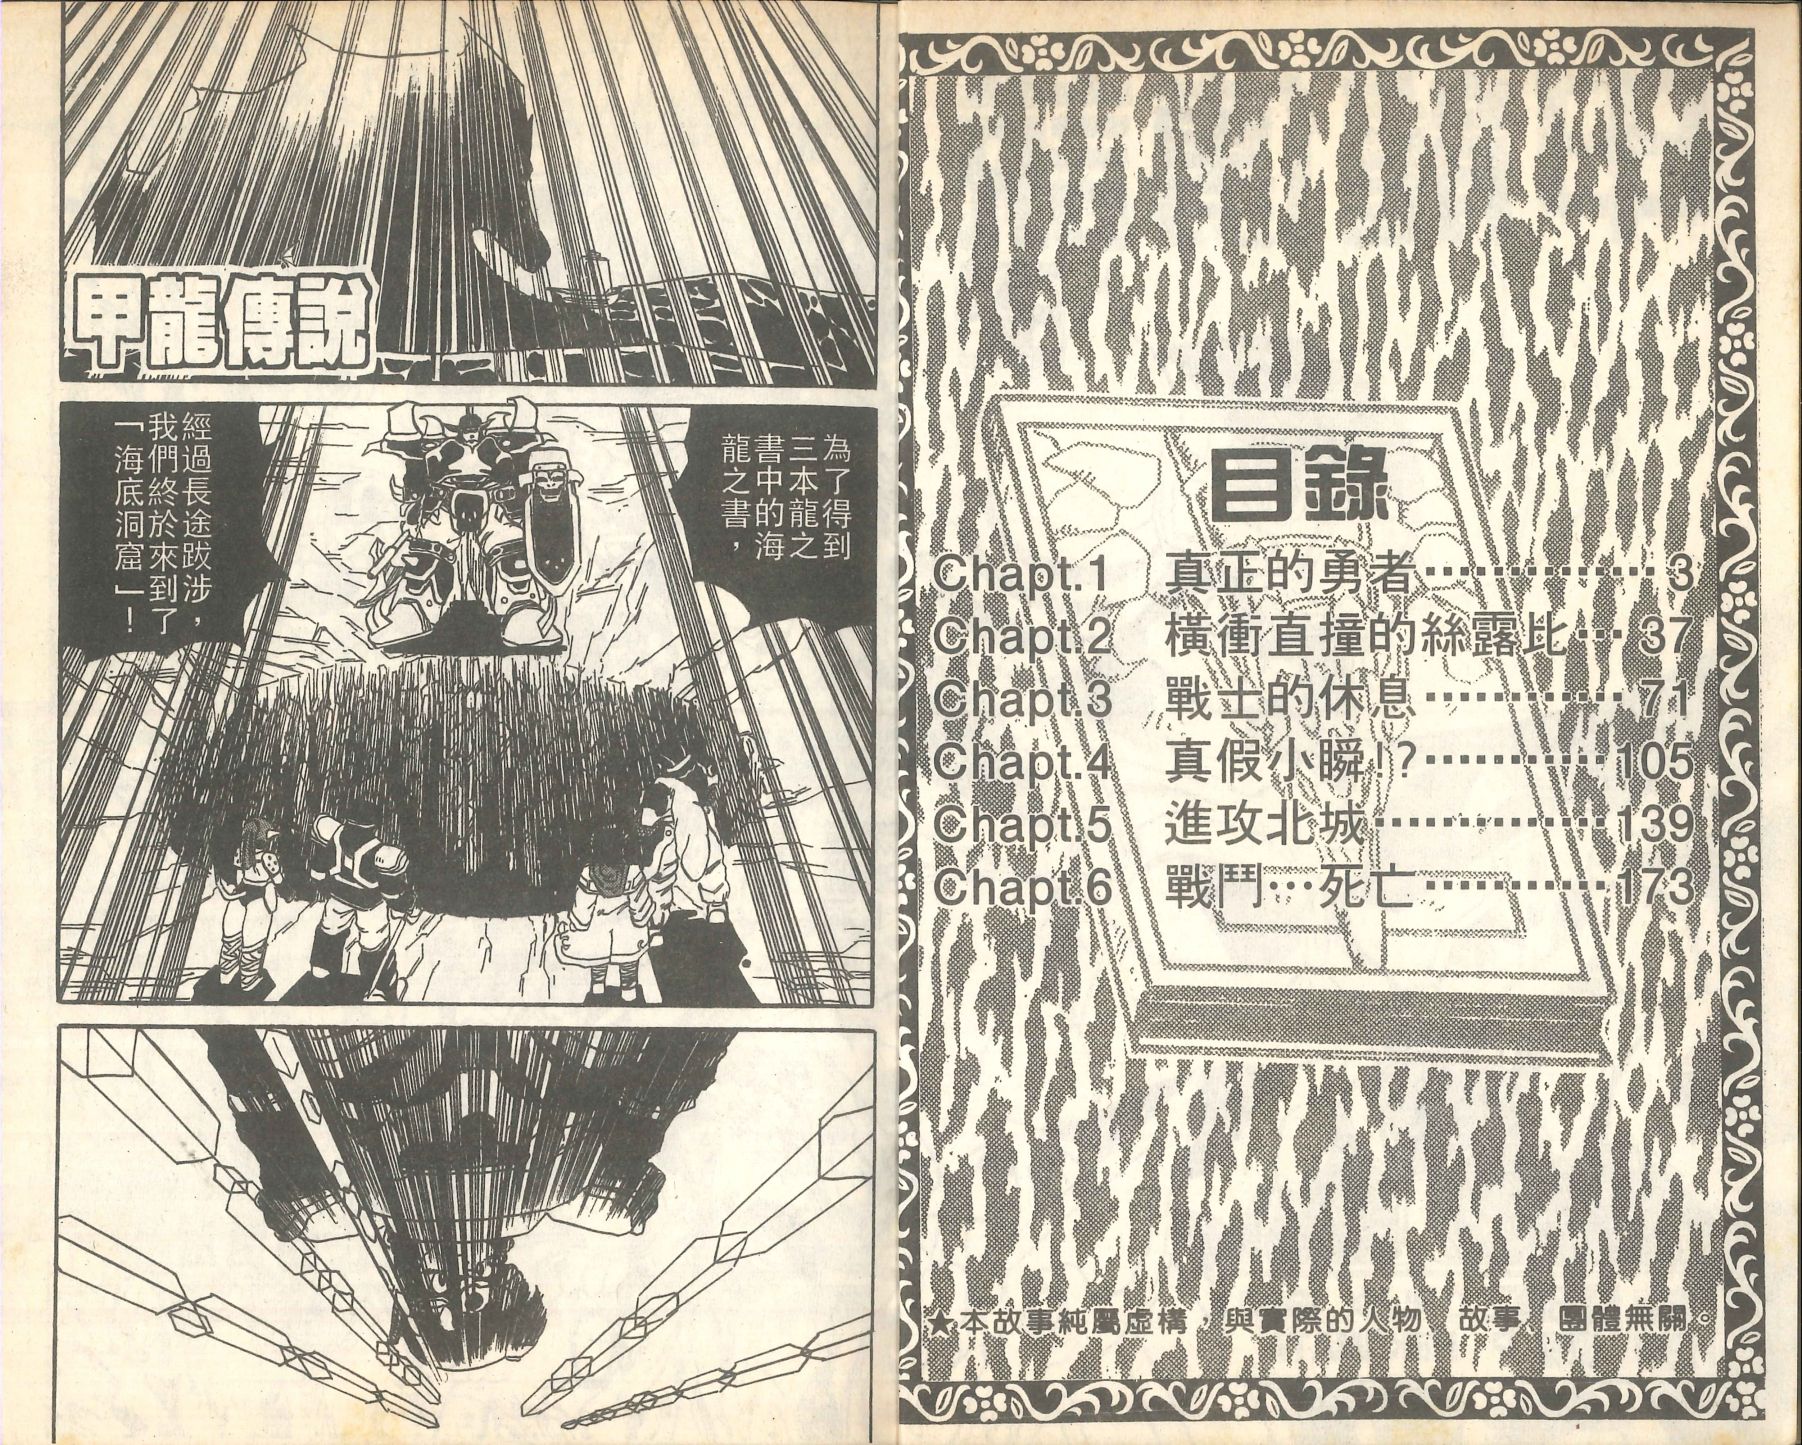 目錄
Chapt.1 真正的勇者……………3
Chapt.2 橫衝直撞的絲露比…37
Chapt.3 戰士的休息…………71
Chapt.4 真假小瞬!?…………105
Chapt.5 進攻北城……………139
Chapt.6 戰鬥…死亡…………173
★本故事純屬虛構，與實際的人物 故事 團體無關。
甲龍傳說
為了得到
三本龍之
書中的海
龍之書，
經過長途跋涉，
我們終於來到了
「海底洞窟」！